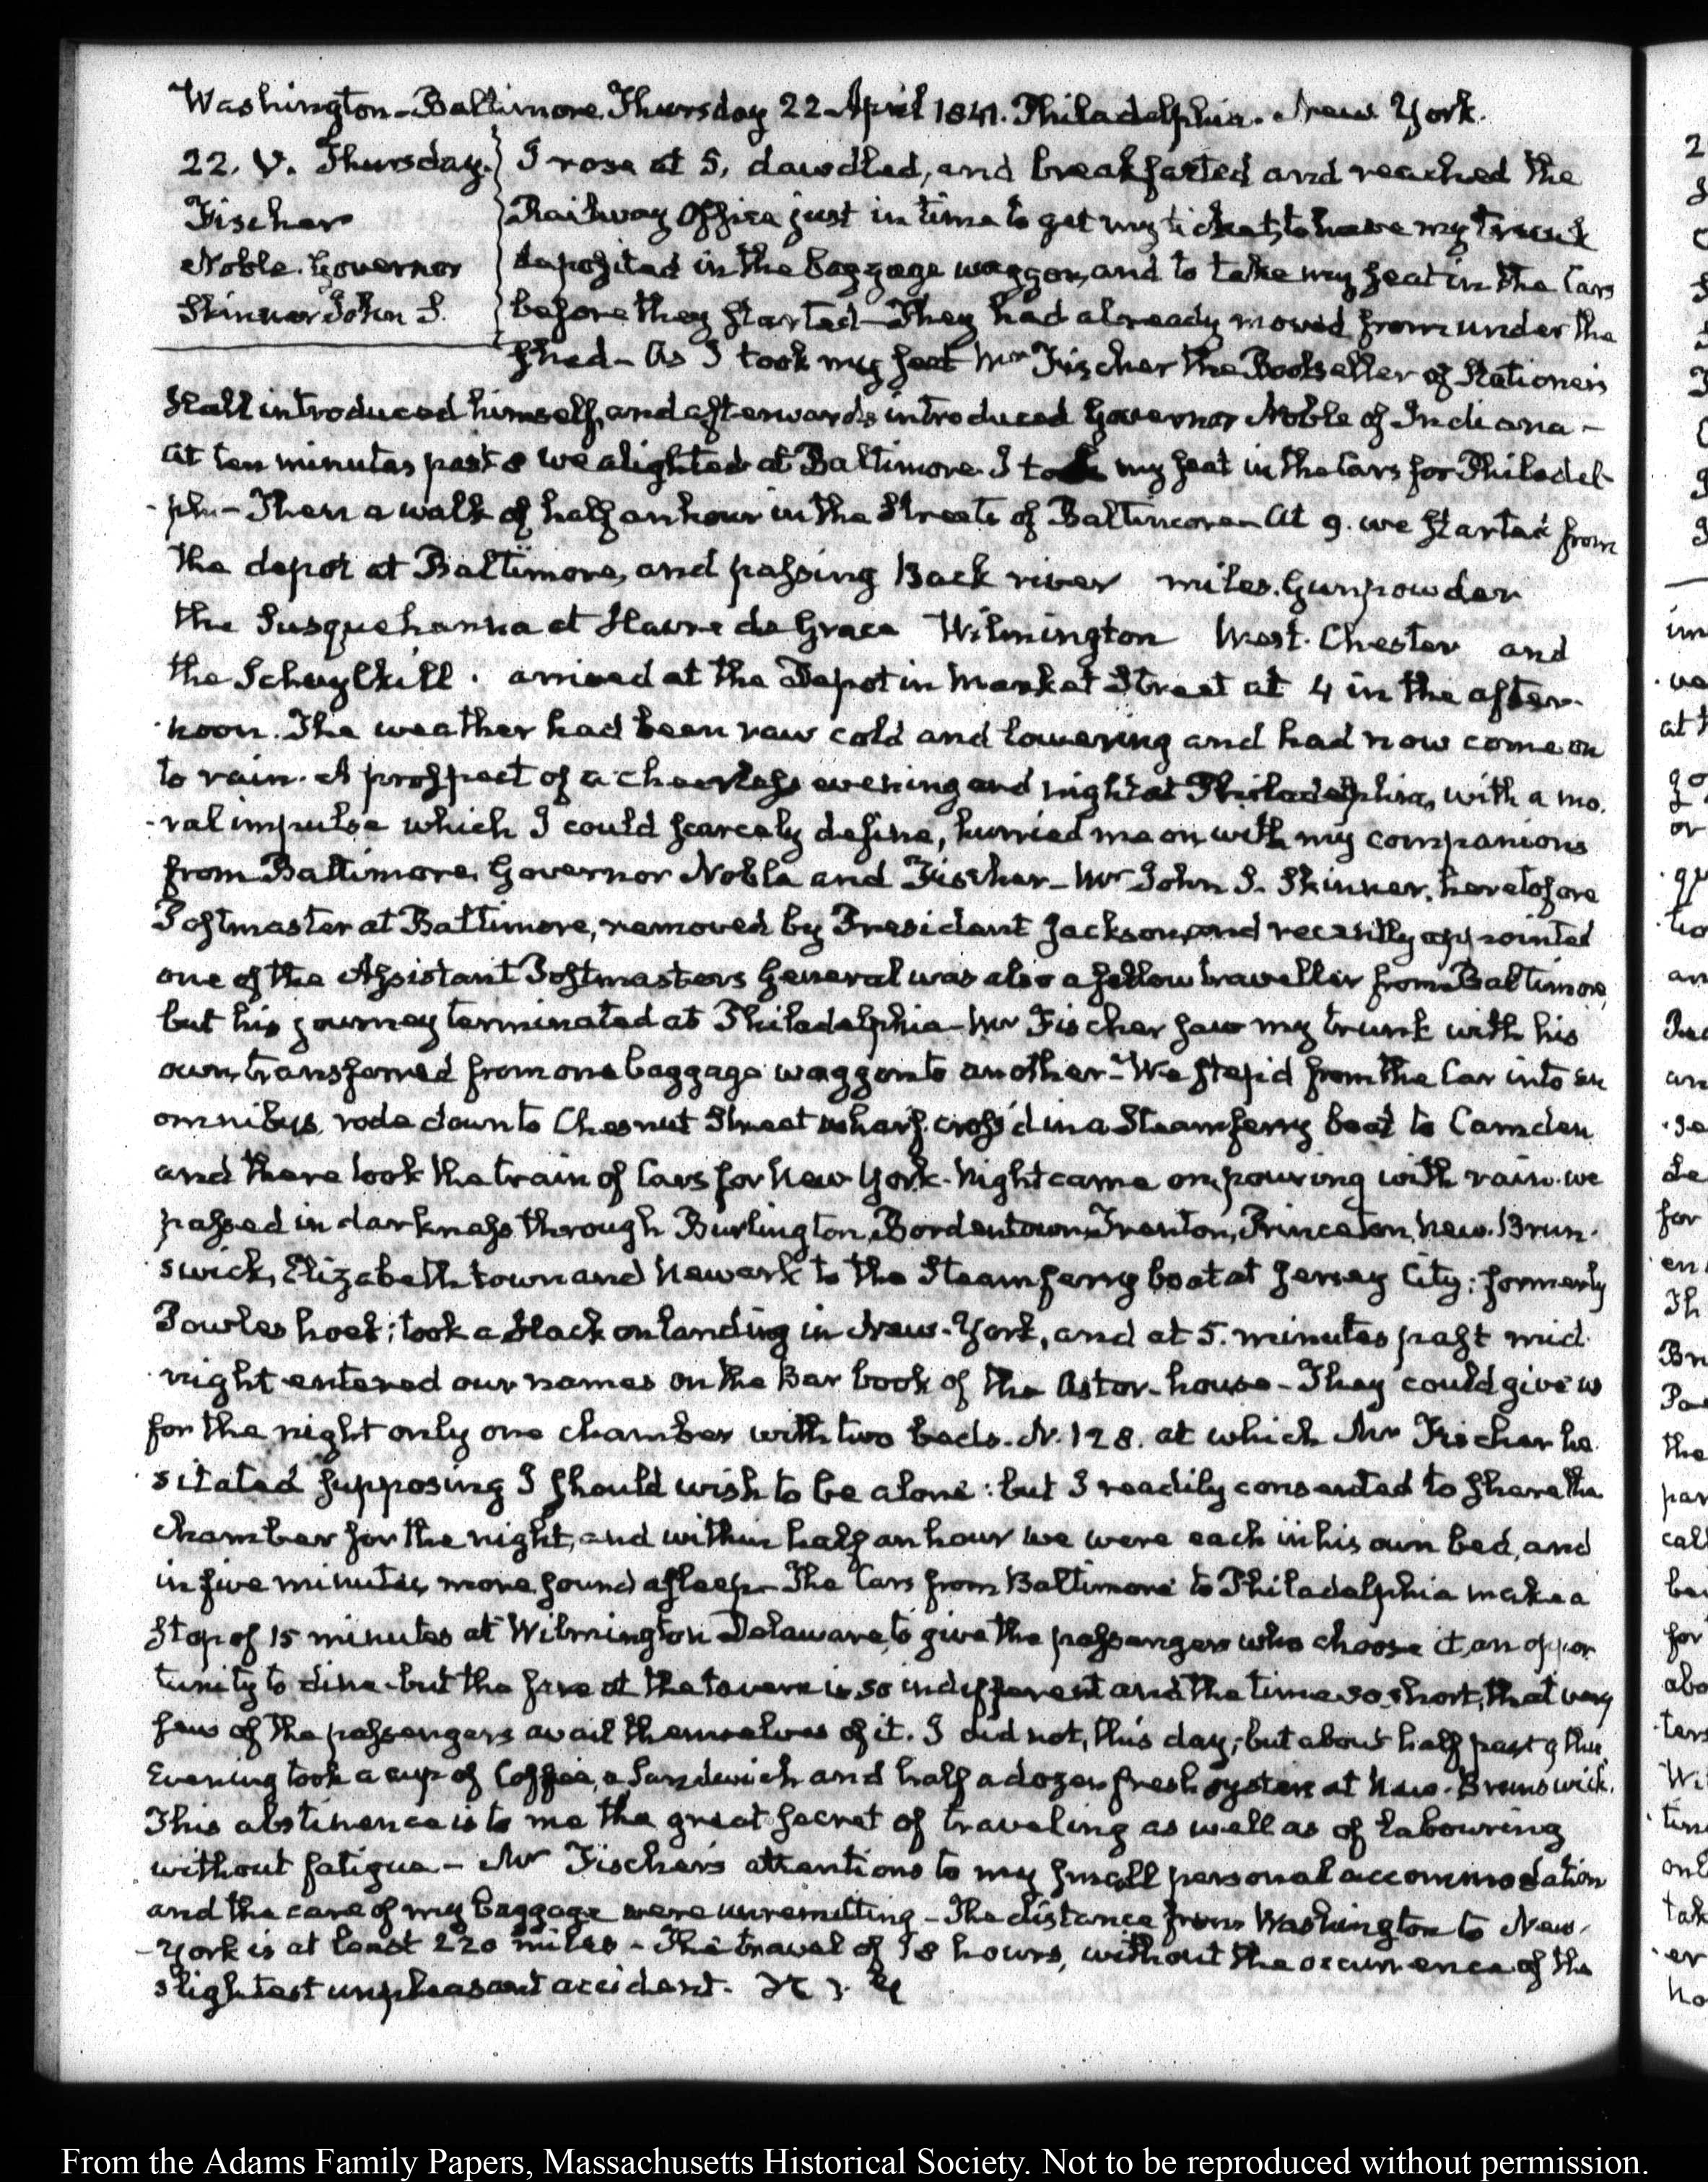 Washington-Baltimore. Thursday 22 April 1841. Philadelphia. New York.
22. V. Thursday.
Fischer
Noble. Governor
Skinner John S.
I rose at 5, dawdled, and breakfasted and reached the
Railway Office just in time to get my ticket, to have my trunk
deposited in the baggage waggon, and to take my seat in the Cars
before they started—They had already moved from under the
shed—As I took my seat Mr Fischer the Bookseller of Stationer's
Hall introduced himself, and afterwards introduced Governor Noble of Indiana—
At ten minutes past 8 we alighted at Baltimore. I took my seat in the Cars for Philadel-
-phi—Then a walk of half an hour in the Streets of Baltimore—At 9. we started from
the depot at Baltimore, and passing Back river miles. Gunpowder
the Susquehanna at Havre de Grace Wilmington West. Chester and
the Schuylkill. arrived at the Depot in Market Street at 4 in the after-
-noon. The weather had been raw cold and lowering and had now come on
to rain. A prospect of a cheerless evening and night at Philadelphia, with a mo-
-ral impulse which I could scarcely define, hurried me on with my companions
from Baltimore, Governor Noble and Fischer—Mr John S. Skinner, heretofore
Postmaster at Baltimore, removed by President Jackson, and recently appointed
one of the Assistant Postmasters General was also a fellow traveller from Baltimore,
but his journey terminated at Philadelphia—Mr Fischer saw my trunk with his
own, transferred from one baggage waggon to another—We stepd from the Car into an
omnibus, rode down to Chesnut Street wharf, cross'd in a Steam ferry boat to Camden
and there took the train of Cars for New York. Night came on, pouring with rain. we
passed in darkness through Burlington, Bordentown, Trenton, Princeton, New. Brun-
-swick, Elizabeth town and Newark to the Steam ferry boat at Jersey City; formerly
Powles hoek; took a Hack on landing in New-York, and at 5. minutes past mid-
-night entered our names on the Bar book of the Astor-house—They could give us
for the night only one chamber with two beds. N. 128. at which Mr Fischer he-
-sitated supposing I should wish to be alone: but I readily consented to share the
chamber for the night, and within half an hour we were each in his own bed, and
in five minutes more sound asleep—The Cars from Baltimore to Philadelphia make a
stop of 15 minutes at Wilmington Delaware, to give the passengers who choose it, an oppor-
tunity to dine—but the fare at the tavern is so indifferent and the time so short, that very
few of the passengers avail themselves of it. I did not, this day; but about half past 9 this
Evening took a cup of Coffee, a Sandwich and half a dozen fresh oysters at New-Brunswick.
This abstinence is to me the great secret of traveling as well as of labouring
without fatigue—Mr Fischer's attentions to my small personal accommodation
and the care of my baggage were unremitting—The distance from Washington to New-
-York is at least 220 miles—The travel of 18 hours, without the occurrence of the
slightest unpleasant accident.
2
im
at t
or
an
un
de
for
en
Th
Br
the
par
call
be
for
abo
ters
Wi
tim
on
tak
er
ho
From the Adams Family Papers, Massachusetts Historical Society. Not to be reproduced without permission.